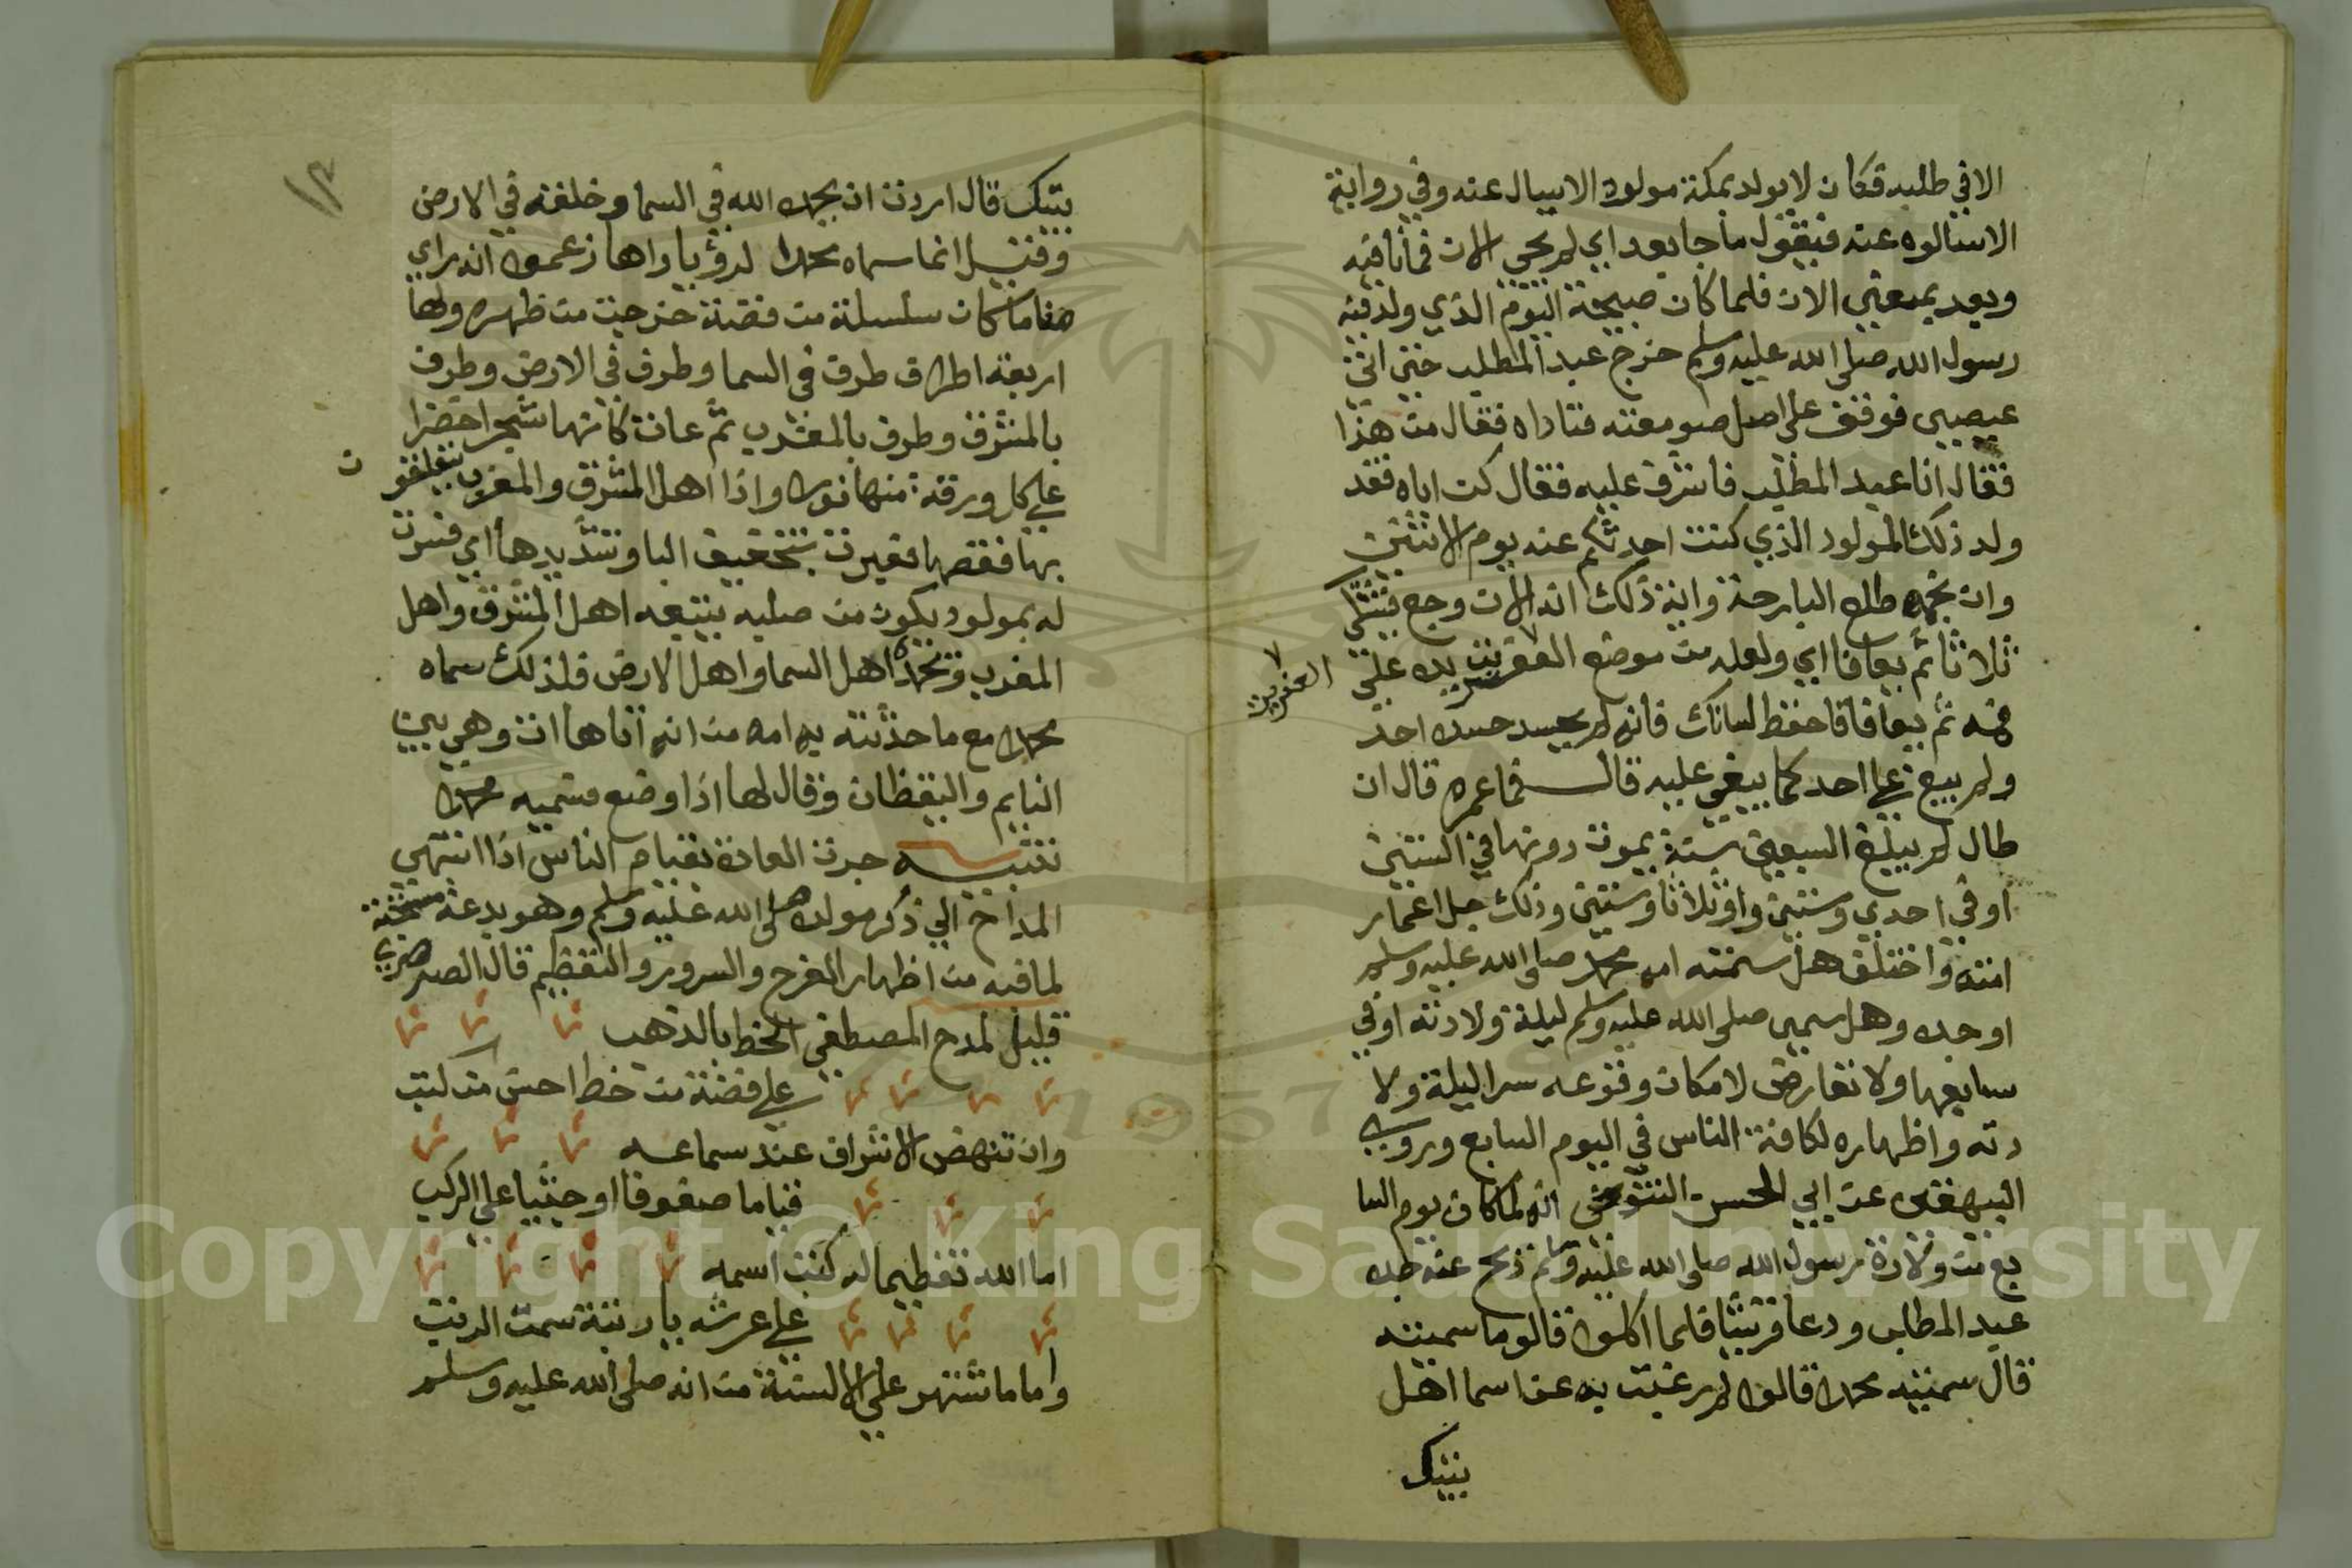 الا في طلبه فكان لا يولد بمكة مولود الا يسال عنه وفي رواية
الا سالوه عنه فيقول ما جا بعد اي لم يجي الان فما نافيه
وبعد بمعني الان فلما كان صبيحة اليوم الذي ولد فيه
رسول الله صلي الله عليه وسلم خرج عبد المطلب حتي اتي
عيصي فوقف علي اصل صومعته فناداه فقال من هذا
فقال انا عبد المطلب فاشرف عليه فقال كن اباه فقد
ولد ذلك المولود الذي كنت احدثكم عنه يوم الاثنين
وان نجمه طلع البارحة واية ذلك انه الان وجع فيشتكي
ثلاثا ثم يعافا اي ولعله من موضع العفريت يده علي
العفريت
فمه ثم يعافا فاحفظ لسانك فانه لم يحسد حسده احد
ولم يبغ علي احد كما يبغي عليه قال فما عمره قال ان
طال لم يبلغ السبعين سنة يموت دونها في الستين
او في احدي وستين او ثلاثا وستين وذلك جل اعمار
امته واختلف هل سمته امه محمد صلي الله عليه وسلم
او جده وهل سمي صلي الله عليه وسلم ليلة ولادته او في
سابعها ولا تعارض لامكان وقوعه سرا ليلة ولا
دته واظهاره لكافة الناس في اليوم السابع وروي
البيهقي عن ابي الحسن التنوخي انه لما كان يوم السا
بع من ولادة رسول الله صلي الله عليه وسلم ذبح عنه جده
عبد المطلب ودعا قريشا فلما اكلوا قالو ما سميته
قال سميته محمدا قالوا لم رغبت به عن اسما اهل
بيتك
١٢
بيتك قال اردت ان يحمده الله في السما وخلقه في الارض
وقيل انما سماه محمدا لرؤيا راها زعموا انه راي
مناما كان سلسلة من فضة خرجت من ظهره ولها
اربعة اطراف طرف في السما وطرف في الارض وطرف
بالمشرق وطرف بالمغرب ثم عادت كانها شجرا خضرا
علي كل ورقة منها نورا واذا اهل المشرق والمغرب يتعلقو
ن
بها فقصها فعبرت بتخفيف البا وتشديدها اي فسرت
له بمولود يكون من صلبه يتبعه اهل المشرق واهل
المغرب وتحمده اهل السما واهل الارض فلذلك سماه
محمدا مع ما حدثته به امه من انه اتاها ات وهي بين
النايم واليقظان وقال لها اذا وضع فسميه محمدا
تنبيه جرت العادة بقيام الناس اذا انتهي
المداح الي ذكر مولده صلي الله عليه وسلم وهو بدعة مستحبة
لما فيه من اظهار الفرح والسرور والتعظيم قال الصرصري
قليل لمدح المصطفي الخط بالذهب
علي فضة من خط احسن من كتب
وان تنهض الاشراف عند سماعه
قياما صفوفا او جثيا علي الركب
اما الله تعظيما له كتب اسمه
علي عرشه يا رتبة سمت الرتب
واما ما شتهر علي الالسنة من انه صلي الله عليه وسلم
Copyright © King Saud University
1957